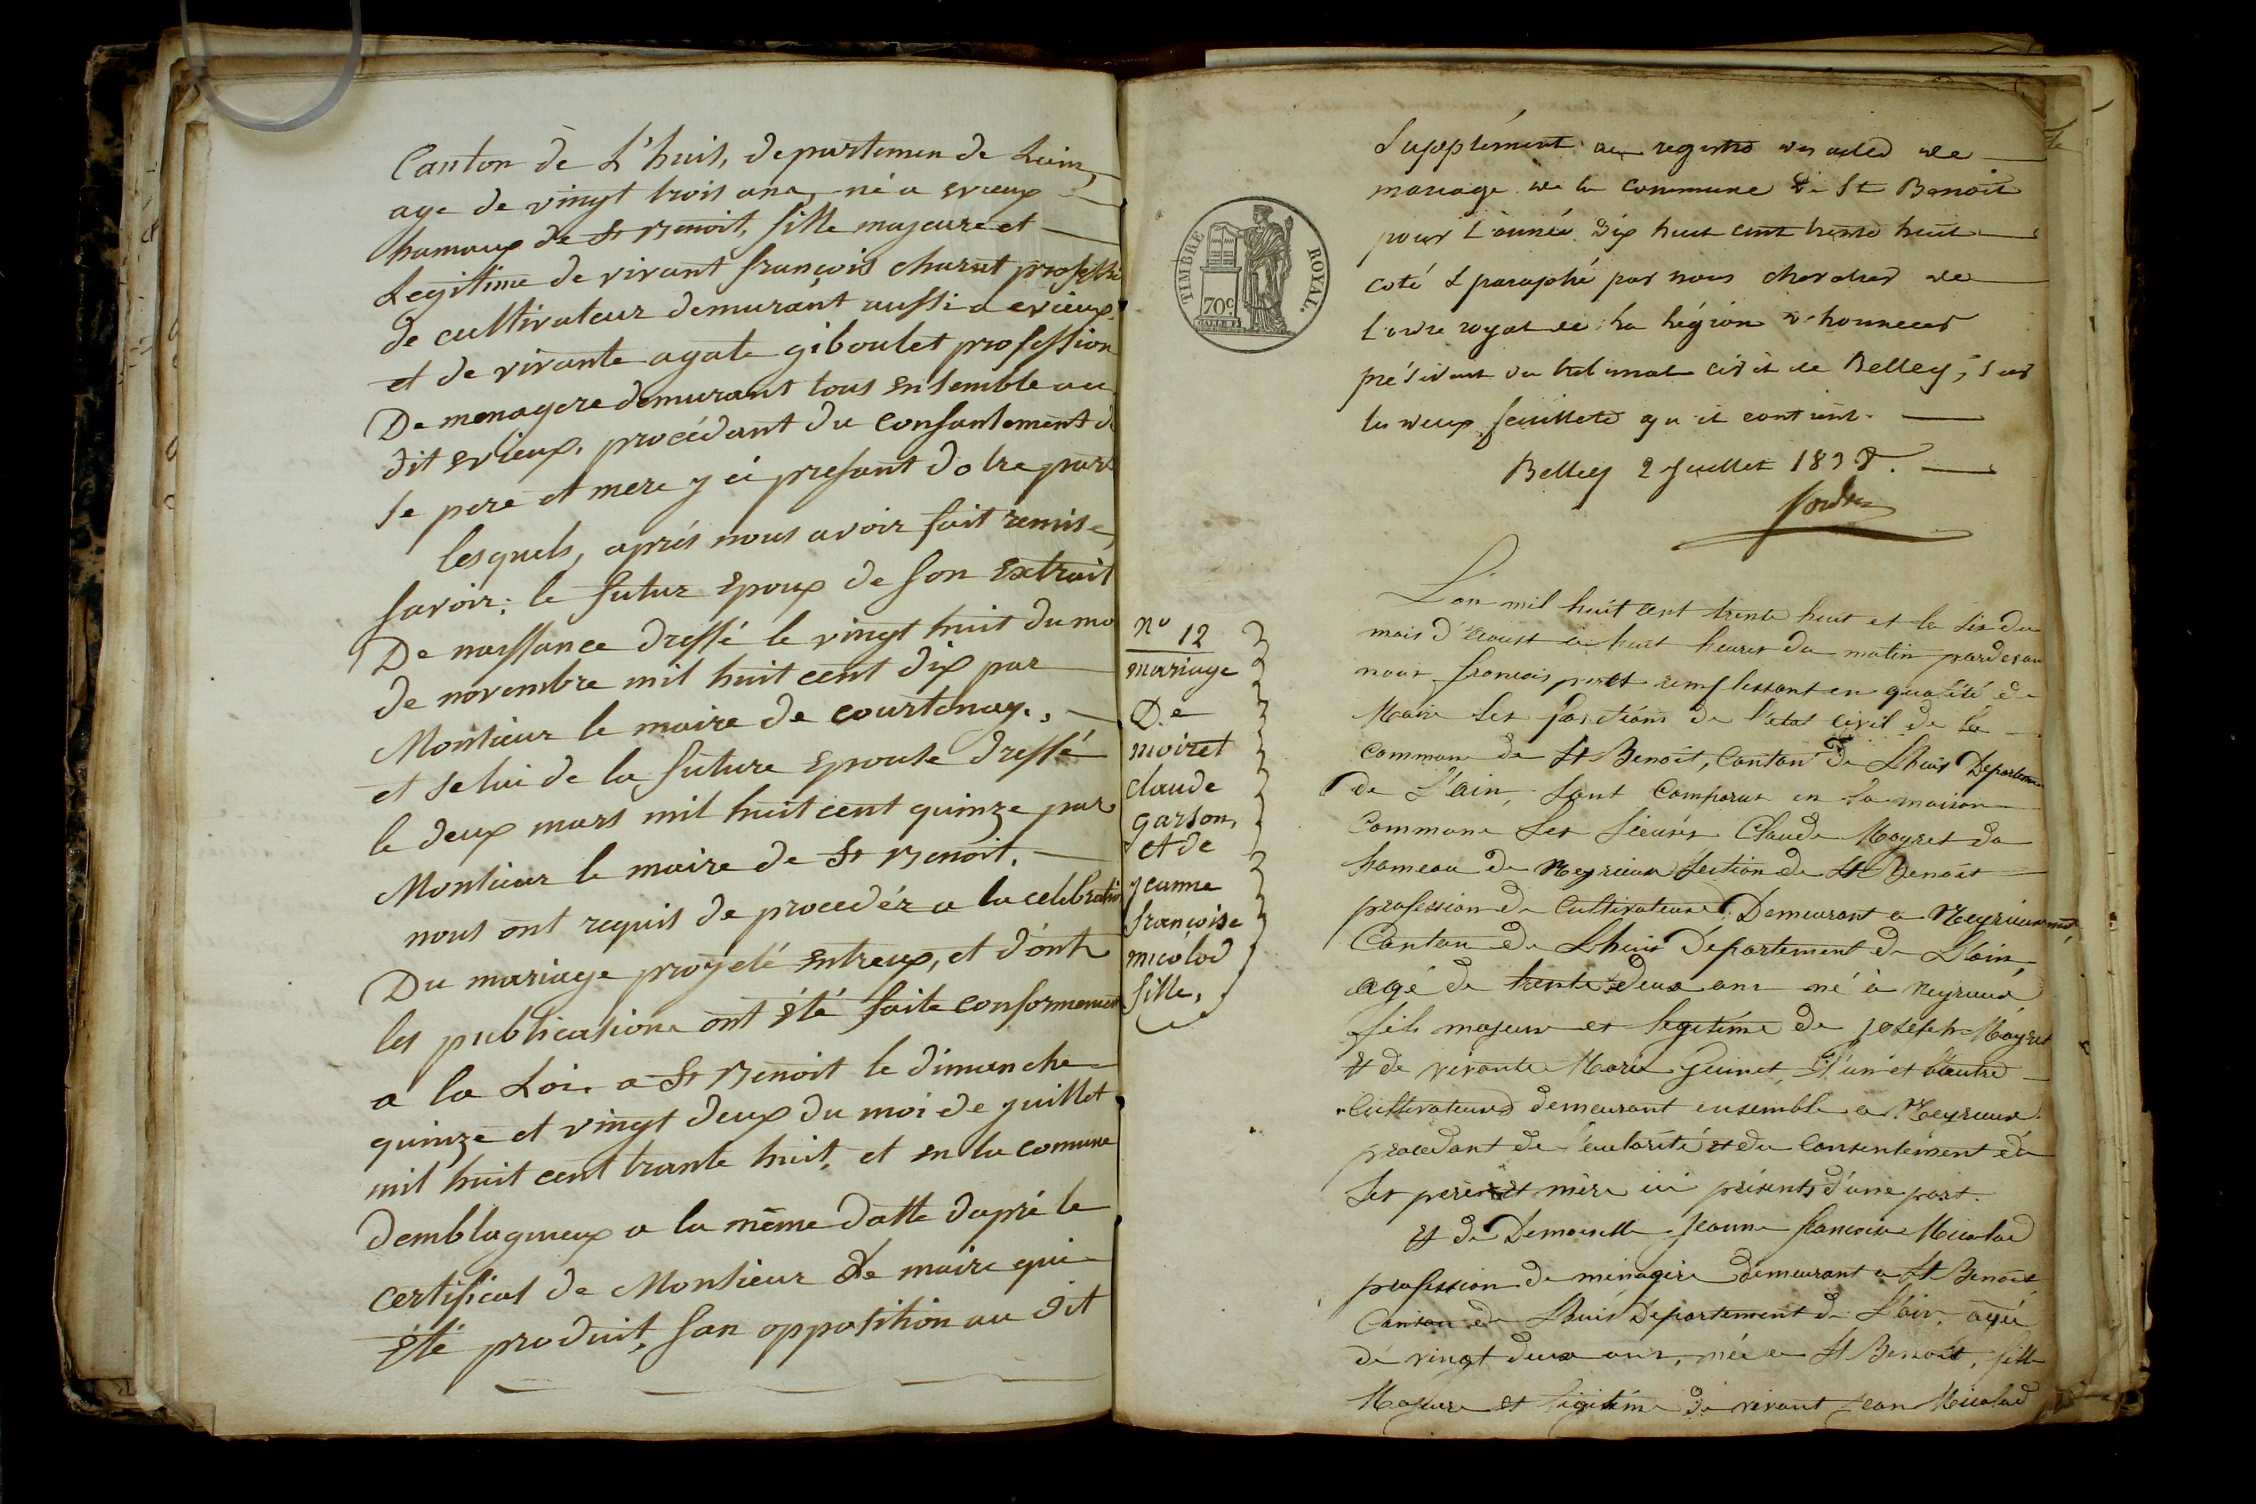 Canton de L'huis, departemen de Lain,
age de vingt trois ans, né a Evieux
hamaux de St Benoit, fille majeure et
Legitime de vivant françois charut profession
de cultivateur demurant aussi a evieux.
et de vivante agate giboulet profession
De menagere demurant tous ensemble au
dit Evieux, procédant du consantement de
se pere et mere y ci presant dotre part
lesquels, aprés nous avoir fait remise,
savoir; le futur Epoux de son Extrait
De naissance dressé le vingt huit du mo
de novembre mil huit cent dix par
Monsieur le maire de courtenay.,
et selui de la future Epouse dressé
le deux mars mil huit cent quinze par
Monsieur le maire de St Benoit.
nous ont requis de procedér a la celebration
Du mariage proyeté Entreux, et dont
les publications ont été faite conformement
a la Loi. a St Benoit le dimanche
quinze et vingt deux du moi de juillet
mil huit cent trante huit, et en la comune
demblagnieux a la même datte dapré le
certificat de Monsieur Le maire qui a
été produit, san opposition au dit
TIMBRE ROYAL.
70c.
Supplément au registre des actes de
mariage de la commune de St Benoit
pour l'année dix huit cent trente huit
coté & paraphé par nous chevalier de
l'ordre royal de la légion d'honneur
président du tribunal civil de Belley, sur
les deux feuillets qu'il contient.
Belley 2 Juillet 1838.
no 12
mariage
De
moiret
claude
garson,
et de
jeanne
françoise
micolod
fille,
L'an mil huit cent trente huit et le six du
mois d'aoust a huit heures du matin pardevan
nous francois remplissant en qualité de
Maire les fonctions de l'etat civil de la
commune de St Benoit, Canton de Lhuis Departemen
de L'ain, sont Comparus en la maison
Commune les sieurs Claude Moyret du
hameau de Meyrieux section de St Benoit
profession de Cultivateur Demeurant a Meyrieux
Canton de Lhuis Departement de L'ain,
agé de trente deux ans né à Neyrieux
fils majeur et legitime de joseph Moyret
et de vivante Marie Guinet, L'un et l'autre
Cultivateurs demeurant ensemble a Meyrieux
procedant de l'autorité et du Consentement de
ses père et mère ici présents d'une part.
Et de Demoiselle Jeanne francoise Micolod
profession de menagère demeurant a St Benoit
Canton de Lhuis Departement de L'ain, agée
de vingt deux ans, née a St Benoit, fille
Majeure et legitime de vivant Jean Micolod